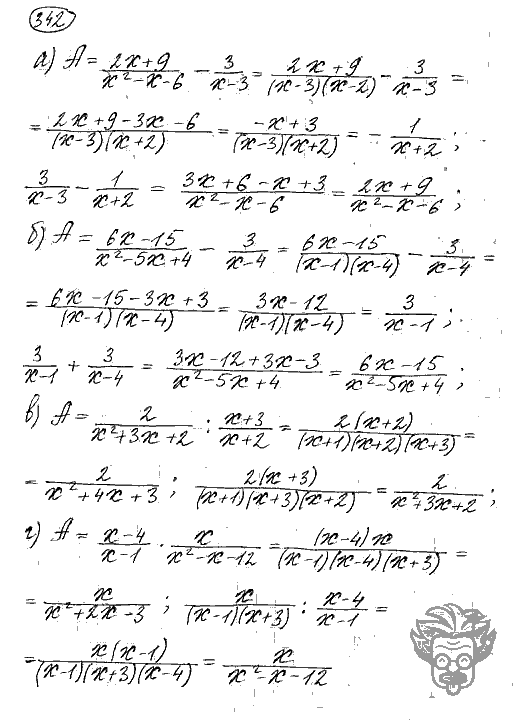 342
а) A = (2x+9)/(x²-x-6) - 3/(x-3) = (2x+9)/((x-3)(x-2)) - 3/(x-3) =
= (2x+9-3x-6)/((x-3)(x+2)) = (-x+3)/((x-3)(x+2)) = - 1/(x+2) ;
3/(x-3) - 1/(x+2) = (3x+6-x+3)/(x²-x-6) = (2x+9)/(x²-x-6) ;
б) A = (6x-15)/(x²-5x+4) - 3/(x-4) = (6x-15)/((x-1)(x-4)) - 3/(x-4) =
= (6x-15-3x+3)/((x-1)(x-4)) = (3x-12)/((x-1)(x-4)) = 3/(x-1) ;
3/(x-1) + 3/(x-4) = (3x-12+3x-3)/(x²-5x+4) = (6x-15)/(x²-5x+4) ;
в) A = 2/(x²+3x+2) : (x+3)/(x+2) = 2(x+2)/((x+1)(x+2)(x+3)) =
= 2/(x²+4x+3) ; 2(x+3)/((x+1)(x+3)(x+2)) = 2/(x²+3x+2) ;
г) A = (x-4)/(x-1) · x/(x²-x-12) = (x-4)x/((x-1)(x-4)(x+3)) =
= x/(x²+2x-3) ; x/((x-1)(x+3)) : (x-4)/(x-1) =
= x(x-1)/((x-1)(x+3)(x-4)) = x/(x²-x-12)